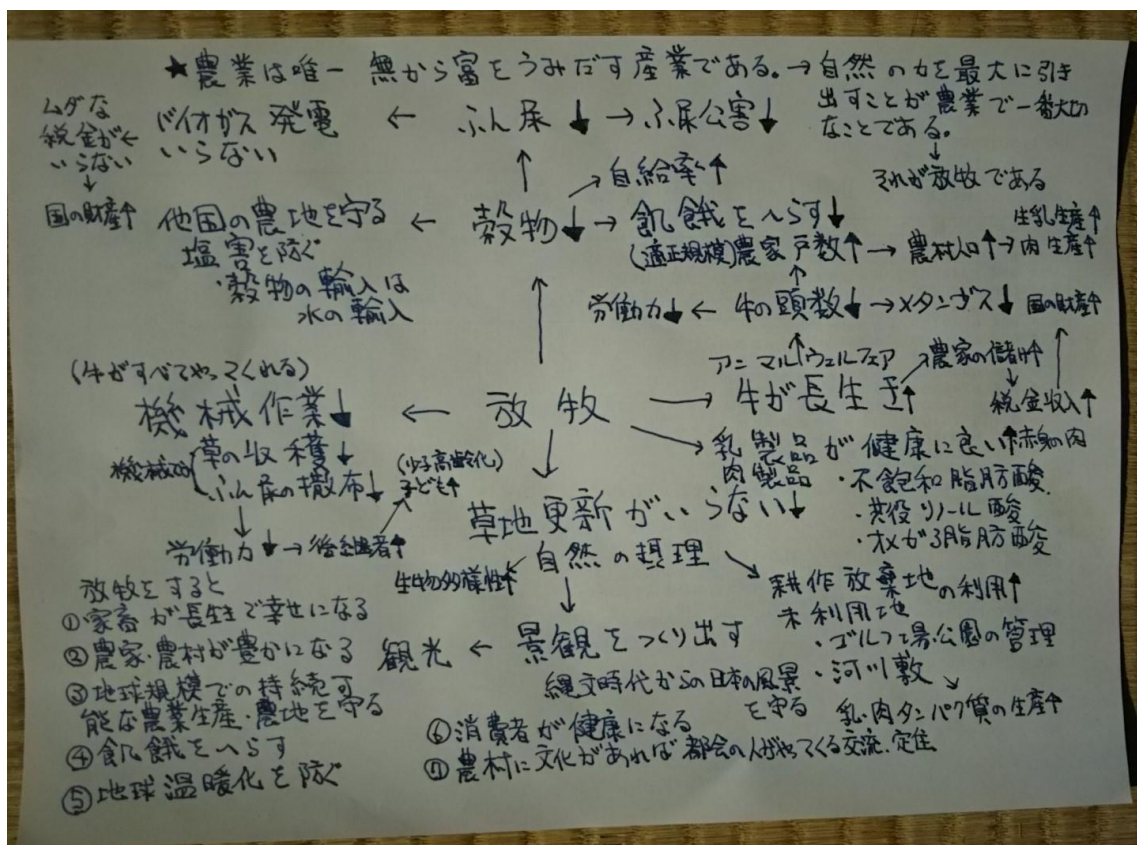 ★農業は唯一 無から富をうみだす産業である。→自然の力を最大に引き
出すことが農業で一番大切
なことである。
↓
それが放牧である
ムダな
税金が←
いらない
↓
国の財産↑
バイオガス発電 ← ふん尿↓→ふん尿公害↓
いらない
↑
↗自給率↑
他国の農地を守る ← 穀物↓→飢餓をへらす↓
塩害を防ぐ
・穀物の輸入は
水の輸入
生乳生産↑
(適正規模)農家戸数↑→農村人口↑→肉生産↑
↑
労働力↓←牛の頭数↓→メタンガス↓ 国の財産↑
↑
アニマルウェルフェア
↗農家の儲け↑
↓
税金収入↑
(牛がすべてやってくれる)
機械作業↓ ← 放牧 → 牛が長生き↑
機械での
草の収穫↓
ふん尿の撒布↓
↓
労働力↓→後継者↑
(少子高齢化)
子ども↑
乳製品が健康に良い↑赤身の肉
肉製品
・不飽和脂肪酸
・共役リノール酸
・オメガ3脂肪酸
草地更新がいらない↓
自然の摂理
生物多様性↑
↓
観光 ← 景観をつくり出す
縄文時代からの日本の風景
を守る
耕作放棄地の利用↑
未利用地
・ゴルフ場・公園の管理
・河川敷
↘
乳・肉タンパク質の生産↑
放牧をすると
①家畜が長生きで幸せになる
②農家・農村が豊かになる
③地球規模での持続可
能な農業生産・農地を守る
④飢餓をへらす
⑤地球温暖化を防ぐ
⑥消費者が健康になる
⑦農村に文化があれば都会の人がやってくる交流、定住